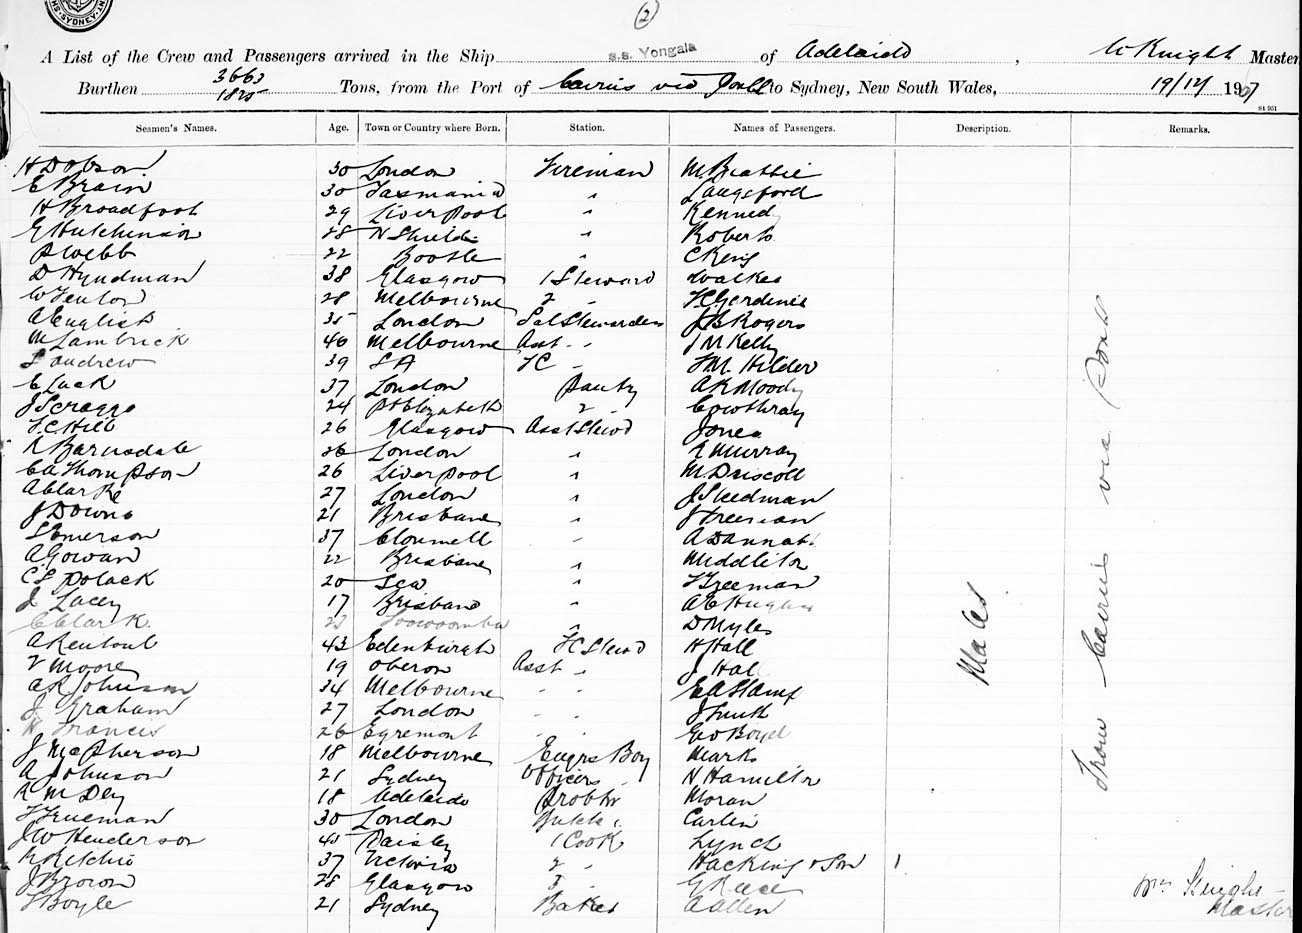 2
SYDNEY
A List of the Crew and Passengers arrived in the Ship s.s. Yongala of Adelaide, W Knight Master
Burthen 3663 Tons, from the Port of Cairns via Ports to Sydney, New South Wales, 19/12 1907
1825
St 951
Seamen's Names. Age. Town or Country where Born. Station. Names of Passengers. Description. Remarks.
H Dobson 30 London Fireman M Beattie
E Brain 30 Tasmania " Langsford
H Broadfoot 29 Liverpool " Kennedy
G Hutchinson 28 N Shields " Roberts
P Webb 22 Bootle " C King
D Hyndman 38 Glasgow 1 Steward Walker
W Fenton 28 Melbourne 2 " Gardiner
A English 35 London Sal Stewardess J B Rogers
M Lambrick 40 Melbourne Asst " " J M Kelly
S Andrew 39 S A FC " F.M. Hilder
C Luck 37 London Pantry A R Moody
J Scraggs 24 Pt Elizabeth 2 Cowthray
F.C. Hill 26 Glasgow Asst Stewd Jones
R Barnsdale 26 London " R Murray
C A Thompson 26 Liverpool " M Driscoll
A Clarke 27 London " J Steedman
J Downs 21 Brisbane " J Freeman
S Omerson 37 Clonmell " A Dannatt
A Gowan 22 Brisbane " Middleton
C S Polack 20 Sea " F Freeman
J Lacey 17 Brisbane " A E Hughes
C Clark 23 Toowoomba " D Myles
A Rentoul 43 Edenburgh FC Stewd H Hall
V Moore 19 Oberon Asst " J Hall
A R Johnson 34 Melbourne " " E A Stamp
J Graham 27 London " " J Smith
H Francis 26 Egremont " " Geo Boyd
J McPherson 18 Melbourne Engrs Boy Marks
A Johnson 21 Sydney Officers " N Hamilton
R M Dey 18 Adelaide Probtr Moran
F Trueman 30 London Butcher Carlin
J W Henderson 45 Paisley 1 Cook Lynch
R Ritchie 37 Victoria 2 " Hacking & Son 1
J Brown 28 Glasgow 3 " G Reece
F Boyle 21 Sydney Baker A Allen
Males
From Cairns via Ports
Wm Knight
Master